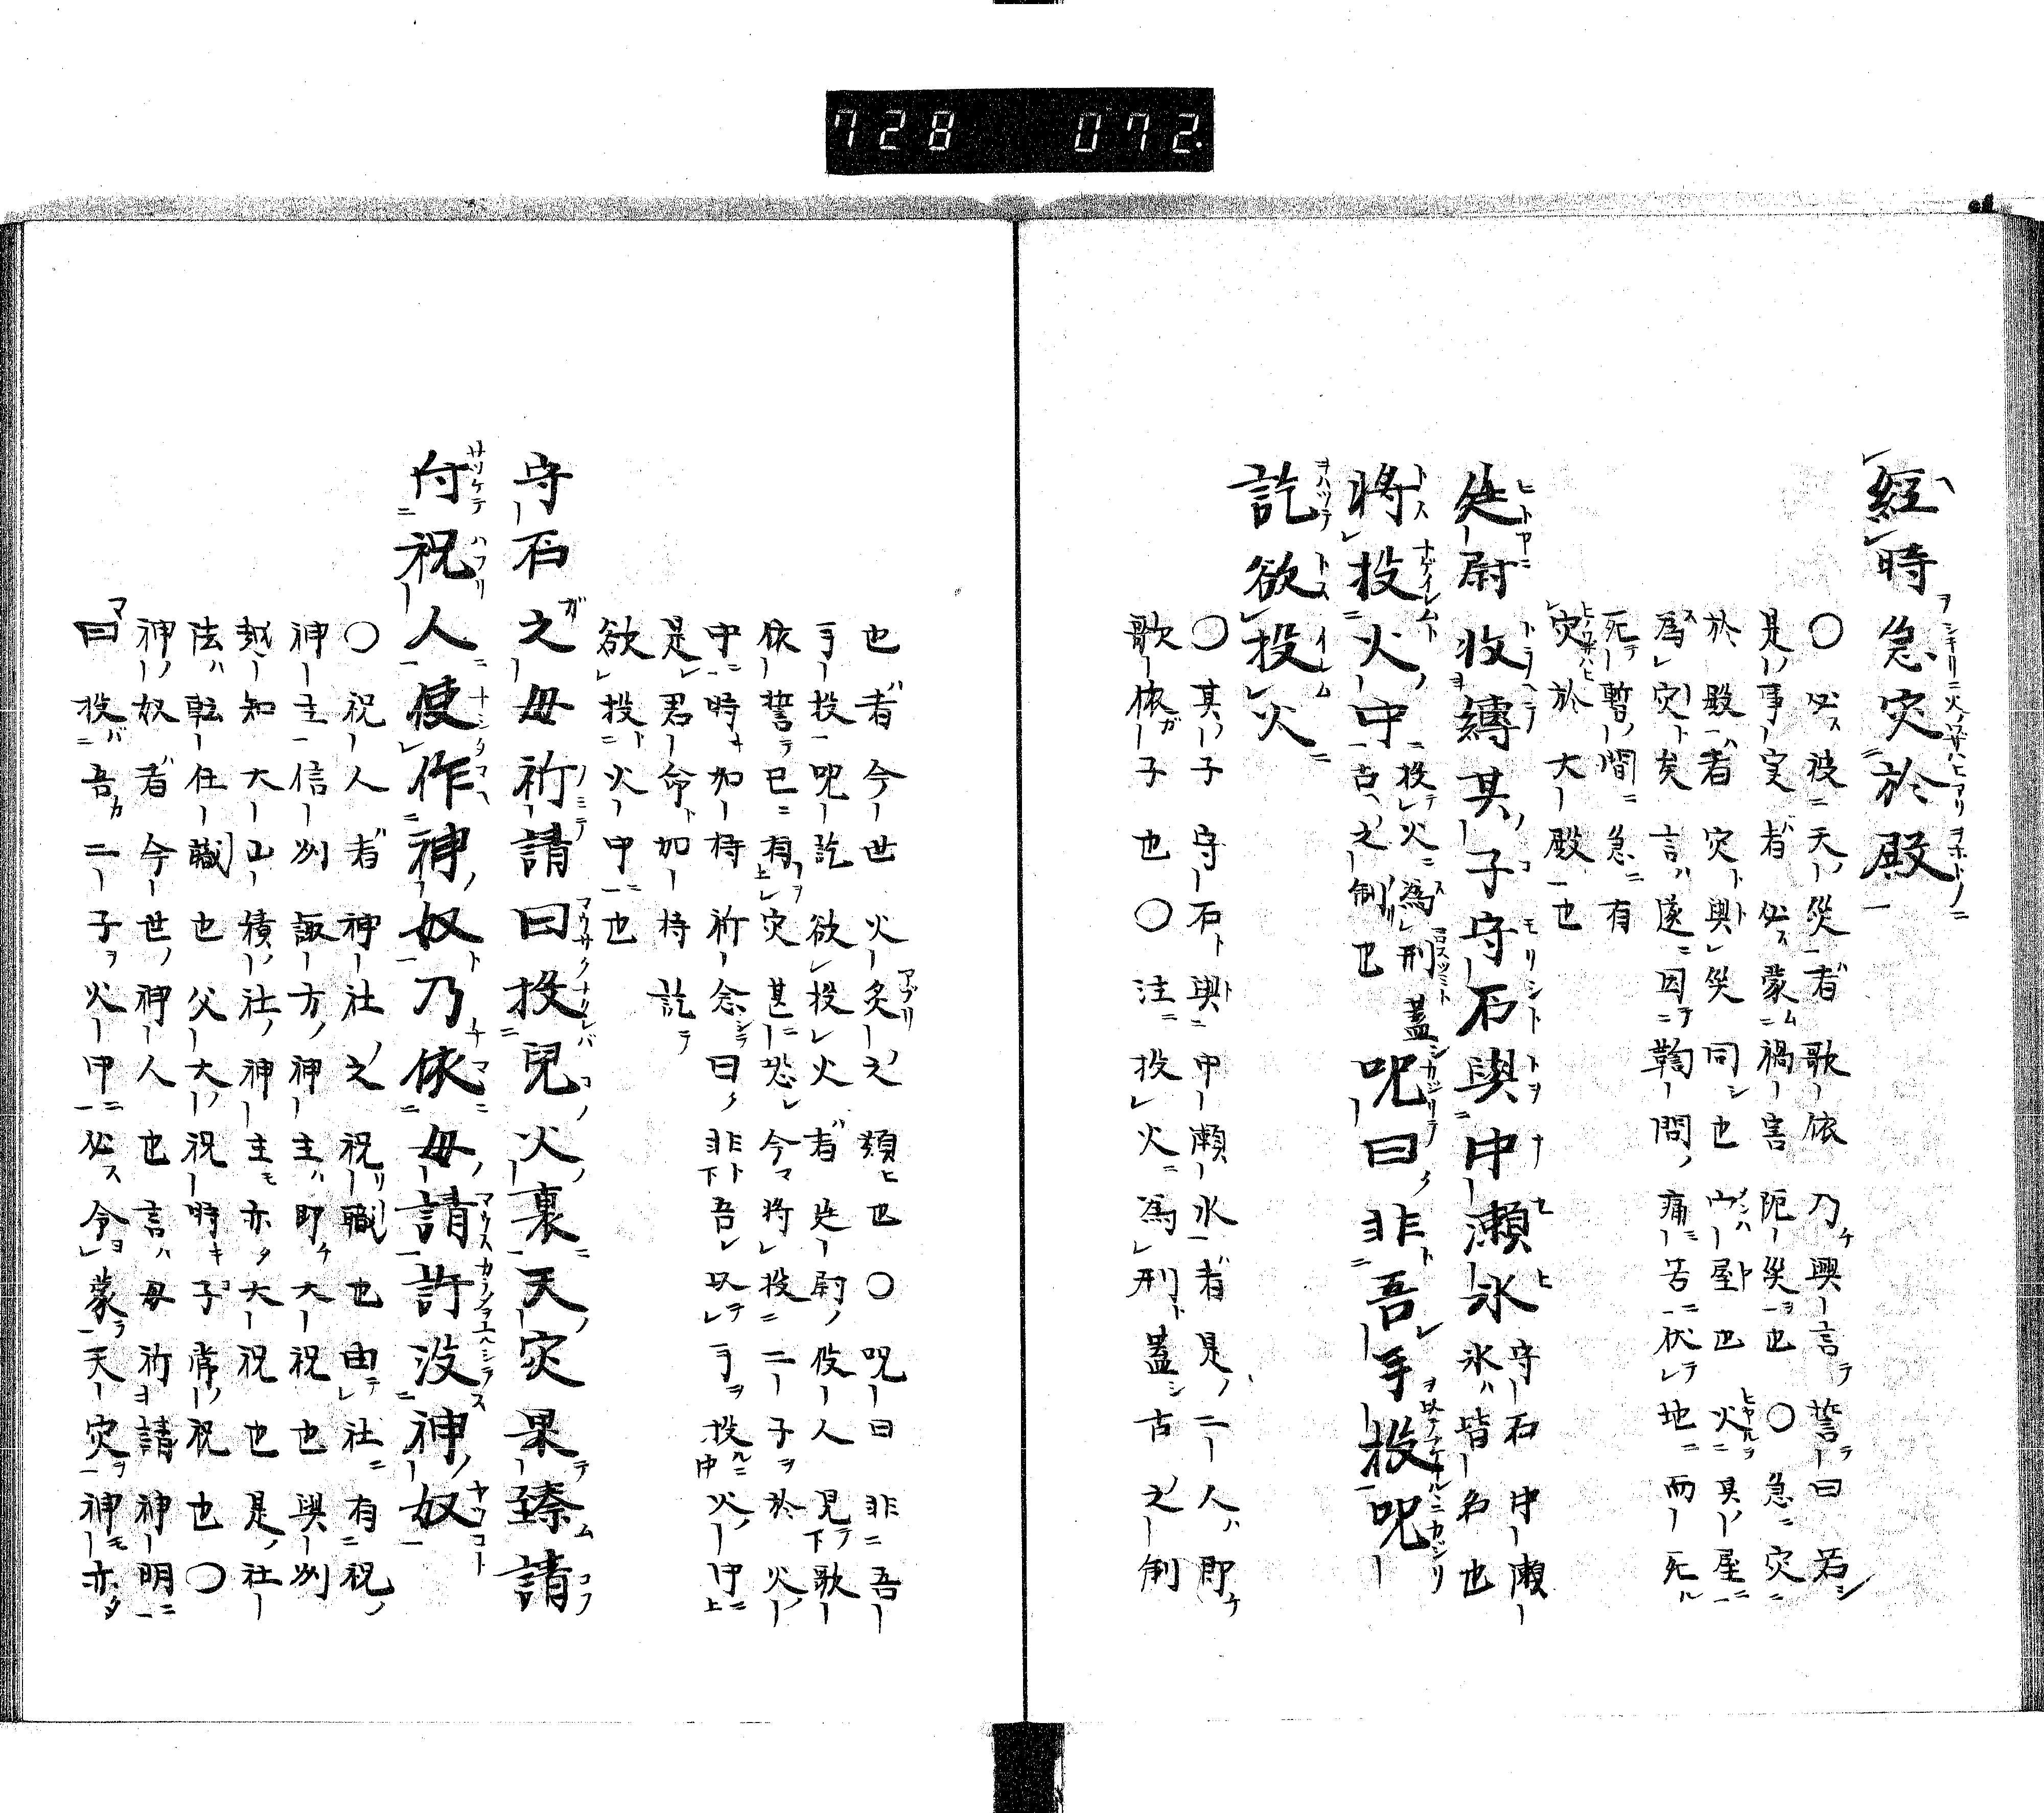 728 072.
経時急灾於殿
〇必被天災者歌依乃興言誓曰若
是事実者必蒙禍害阨災也〇急灾
於殿者灾與災同也宀屋也火具屋
為灾矣言遂因鞫問痛苦伏地而死
死暫間急有
灾於大殿也
廷尉收縛其子守石與中瀬氷守石中瀬氷皆名也
将投火中投火為刑蓋古之制也呪曰非吾手投呪
訖欲投火
〇其子守石與中瀬氷者是二人即
歌依子也〇注投火為刑蓋古之制
也者今世火炙之類也〇呪曰非吾
手投呪訖欲投火者廷尉伇人見歌
依誓已有灾甚恐今将投二子於火
中時加持祈念曰非吾以手投火中
是君命加持訖
欲投火中也
守石之母祈請曰投児火裏天灾果臻請
付祝人使作神奴乃依母請許没神奴
〇祝人者神社之祝職也由社有祝
神主信州諏方神主即大祝也與州
越知大山積社神主亦大祝也是社
法転任職也父大祝時子常祝也〇
神奴者今世神人也言母祈請神明
曰投吾二子火中必令蒙天灾神亦